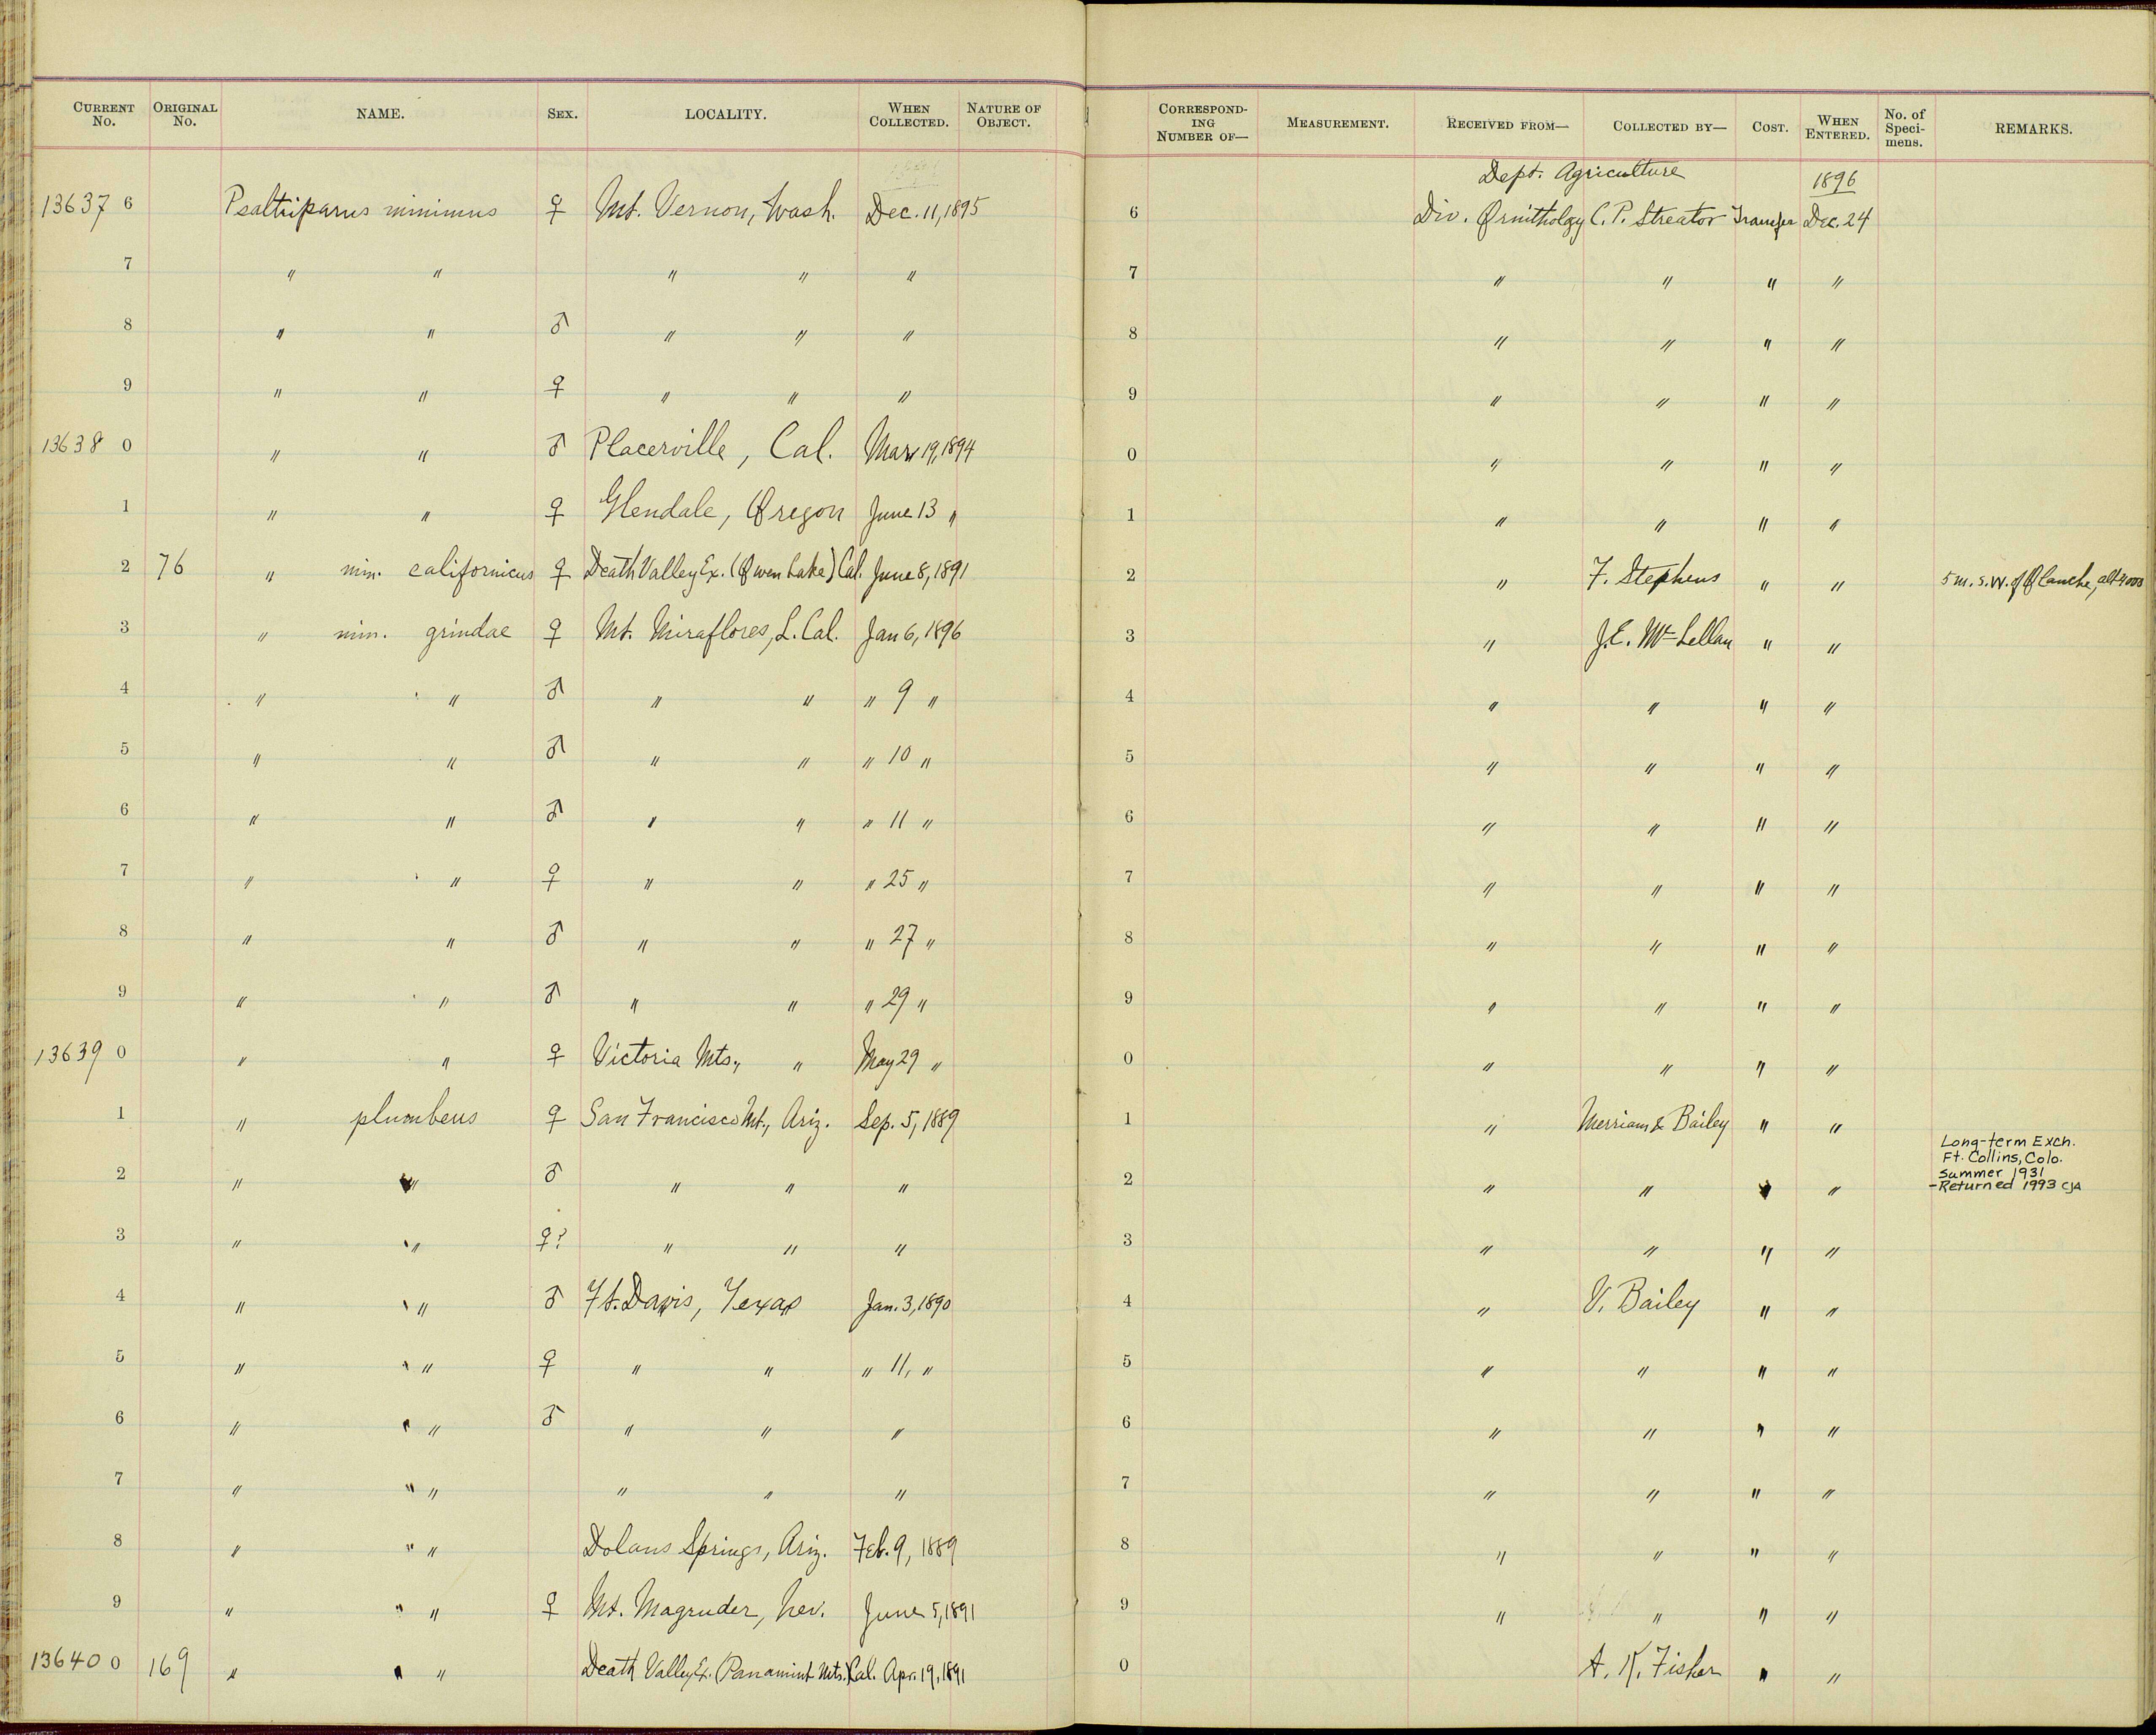 CURRENT No. ORIGINAL No. NAME. SEX. LOCALITY. WHEN COLLECTED. NATURE OF OBJECT. CORRESPONDING NUMBER OF— MEASUREMENT. RECEIVED FROM— COLLECTED BY— COST. WHEN ENTERED. No. of Specimens. REMARKS.
Dept. Agriculture 1896
13637 6 Psaltriparus minimus ♀ Mt. Vernon, Wash. Dec. 11, 1895 6 Div. Ornithology C. P. Streator Transfer Dec. 24
7 " " " " " 7 " " " "
8 " " ♂ " " " 8 " " " "
9 " " ♀ " " " 9 " " " "
13638 0 " " ♂ Placerville, Cal. Mar 19, 1894 0 " " " "
1 " " ♀ Glendale, Oregon June 13 " 1 " " " "
2 76 " min. californicus ♀ Death Valley Ex. (Owen Lake) Cal. June 8, 1891 2 " F. Stephens " " 5 m. S.W. of Olanche, alt 4000
3 " min. grindae ♀ Mt. Miraflores, L. Cal. Jan 6, 1896 3 " J. E. McLellan " "
4 " " ♂ " " " 9 " 4 " " " "
5 " " ♂ " " " 10 " 5 " " " "
6 " " ♂ " " " 11 " 6 " " " "
7 " " ♀ " " " 25 " 7 " " " "
8 " " ♂ " " " 27 " 8 " " " "
9 " " ♂ " " " 29 " 9 " " " "
13639 0 " " ♀ Victoria Mts., " May 29 " 0 " " " "
1 " plumbeus ♀ San Francisco Mt., Ariz. Sep. 5, 1889 1 " Merriam & Bailey " "
2 " " ♂ " " " 2 " " " " Long-term Exch.
Ft. Collins, Colo.
Summer 1931
-Returned 1993 CJA
3 " " ♀? " " " 3 " " " "
4 " " ♂ Ft. Davis, Texas Jan. 3, 1890 4 " V. Bailey " "
5 " " ♀ " " " 11, " 5 " " " "
6 " " ♂ " " " 6 " " " "
7 " " " " " 7 " " " "
8 " " Dolans Springs, Ariz. Feb. 9, 1889 8 " " " "
9 " " ♀ Mt. Magruder, Nev. June 5, 1891 9 " " " "
13640 0 169 " " Death Valley Ex. (Panamint Mts.) Cal. Apr. 19, 1891 0 A. K. Fisher " "